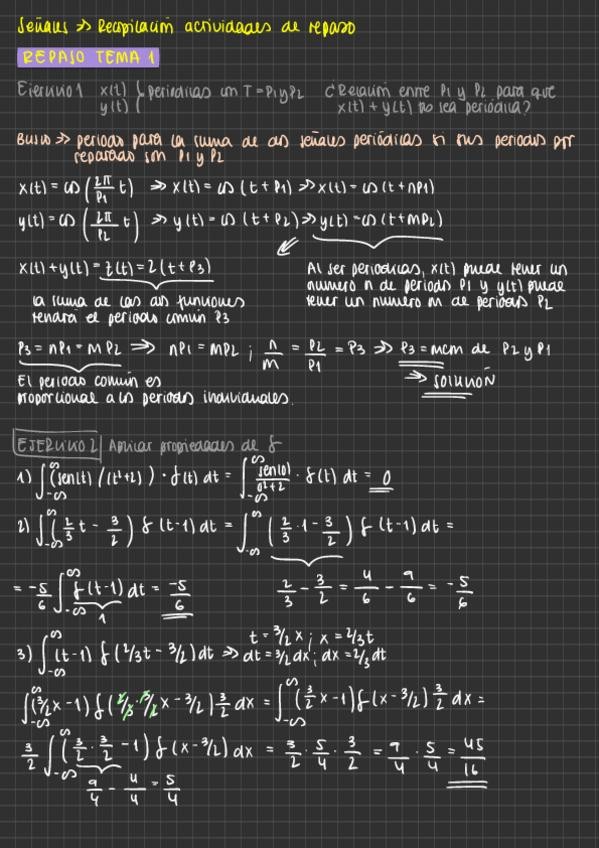 Señales => Recopilación actividades de repaso
REPASO TEMA 1
Ejercicio 1 x(t) y(t) { periódicas con T = P1 y P2 ¿Relación entre P1 y P2 para que x(t) + y(t) no sea periódica?
Busco => periodo para la suma de dos señales periódicas si sus periodos por
separado son P1 y P2
x(t) = cos (2π/P1 t) => x(t) = cos (t + P1) => x(t) = cos (t + nP1)
y(t) = cos (2π/P2 t) => y(t) = cos (t + P2) => y(t) = cos (t + mP2)
x(t) + y(t) = z(t) = z(t + P3)
la suma de las dos funciones
tendrá el periodo común P3
Al ser periódicas, x(t) puede tener un
numero n de periodo P1 y y(t) puede
tener un numero m de periodos P2
P3 = nP1 = mP2 => nP1 = mP2 ; n/m = P2/P1 = P3 => P3 = mcm de P2 y P1
El periodo común es
proporcional a los periodos individuales.
=> SOLUCIÓN
EJERCICIO 2 Aplicar propiedades de δ
1) ∫_{-∞}^{∞} (sen(t) / (t²+2)) · δ(t) dt = ∫_{-∞}^{∞} sen(0)/0²+2 · δ(t) dt = 0
2) ∫_{-∞}^{∞} (2/3 t - 3/2) δ(t-1) dt = ∫_{-∞}^{∞} (2/3 · 1 - 3/2) δ(t-1) dt =
= -5/6 ∫_{-∞}^{∞} δ(t-1) dt = -5/6
1
2/3 - 3/2 = 4/6 - 9/6 = -5/6
3) ∫_{-∞}^{∞} (t-1) δ(2/3t - 3/2) dt => t = 3/2 x ; x = 2/3 t
dt = 3/2 dx ; dx = 2/3 dt
∫_{-∞}^{∞} (3/2 x - 1) δ(2/3 · 3/2 x - 3/2) 3/2 dx = ∫_{-∞}^{∞} (3/2 x - 1) δ(x - 3/2) 3/2 dx =
3/2 ∫_{-∞}^{∞} (3/2 · 3/2 - 1) δ(x - 3/2) dx = 3/2 · 5/4 · 3/2 = 9/4 · 5/4 = 45/16
9/4 - 4/4 = 5/4